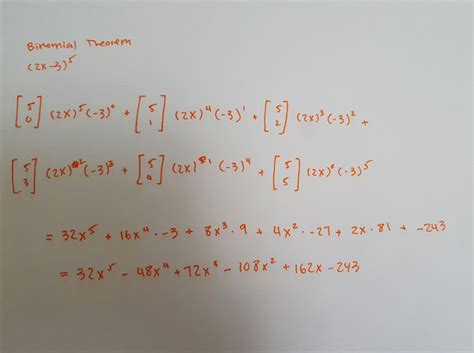 Binomial Theorem
(2x-3)⁵
[5 0] (2x)⁵(-3)⁰ + [5 1] (2x)⁴(-3)¹ + [5 2] (2x)³(-3)² +
[5 3] (2x)²(-3)³ + [5 4] (2x)¹(-3)⁴ + [5 5] (2x)⁰(-3)⁵
= 32x⁵ + 16x⁴·-3 + 8x³·9 + 4x²·-27 + 2x·81 + -243
= 32x⁵ - 48x⁴ + 72x³ - 108x² + 162x - 243